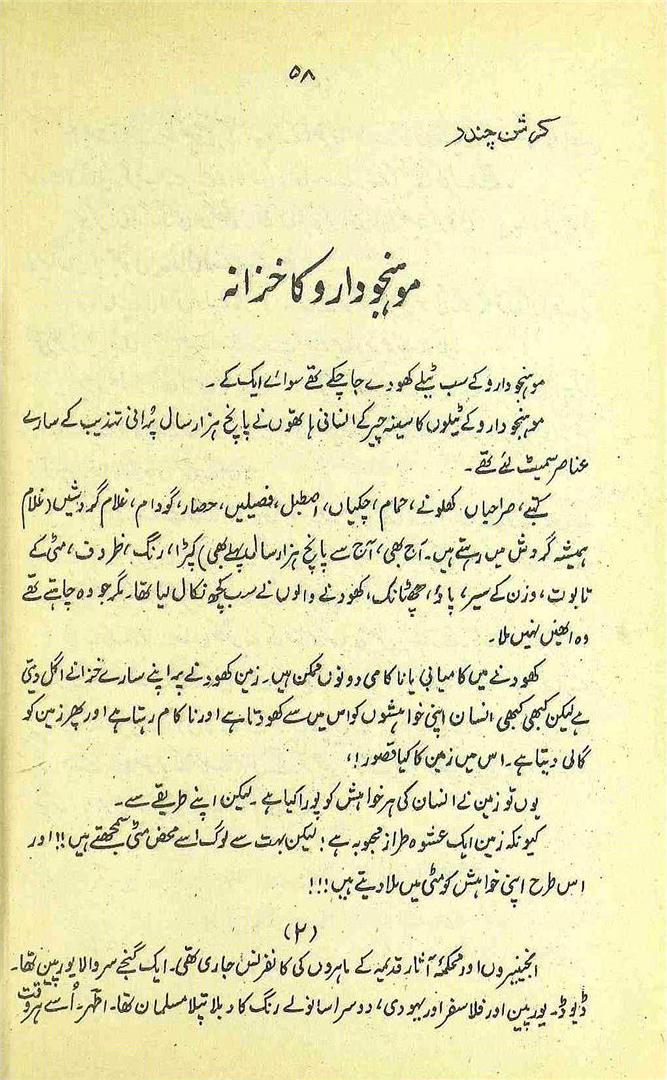 ۵۸
کرشن چندر
موہنجودارو کا خزانہ
موہنجودارو کے سب ٹیلے کھودے جا چکے تھے سوائے ایک کے۔
موہنجودارو کے ٹیلوں کا سینہ چیر کے انسانی ہاتھوں نے پانچ ہزار سال پُرانی تہذیب کے سارے
عناصر سمیٹ لئے تھے۔
کتبے، صراحیاں کھلونے، حمام، چکیاں، اصطبل، فصیلیں، حصار، گودام، غلام گردشیں (غلام
ہمیشہ گردش میں رہتے ہیں۔ آج بھی، آج سے پانچ ہزار سال پہلے بھی) کپڑا، رنگ، ظروف، مٹی کے
تابوت، وزن کے سیر، پاؤ، چھٹانک، کھودنے والوں نے سب کچھ نکال لیا تھا۔ مگر جو وہ چاہتے تھے
وہ انھیں نہیں ملا۔
کھودنے میں کامیابی یا ناکامی دونوں ممکن ہیں۔ زمین کھودنے پر اپنے سارے خزانے اگل دیتی
ہے لیکن کبھی کبھی انسان اپنی خواہشوں کو اس میں سے کھودتا ہے اور ناکام رہتا ہے اور پھر زمین کو
گالی دیتا ہے۔ اس میں زمین کا کیا قصور!،
یوں تو زمین نے انسان کی ہر خواہش کو پورا کیا ہے۔ لیکن اپنے طریقے سے۔
کیونکہ زمین ایک عشوہ طراز محبوبہ ہے! لیکن بہت سے لوگ اسے محض مٹی سمجھتے ہیں!! اور
اس طرح اپنی خواہش کو مٹی میں ملا دیتے ہیں!!!
(۲)
انجینیروں اور محکمۂ آثار قدیمہ کے ماہروں کی کانفرنس جاری تھی۔ ایک گنجے سر والا یورپین تھا۔
ڈیوڈ۔ یورپین اور فلاسفر اور یہودی، دوسرا سانولے رنگ کا دبلا پتلا مسلمان تھا۔ اظہر۔ اُسے ہر وقت